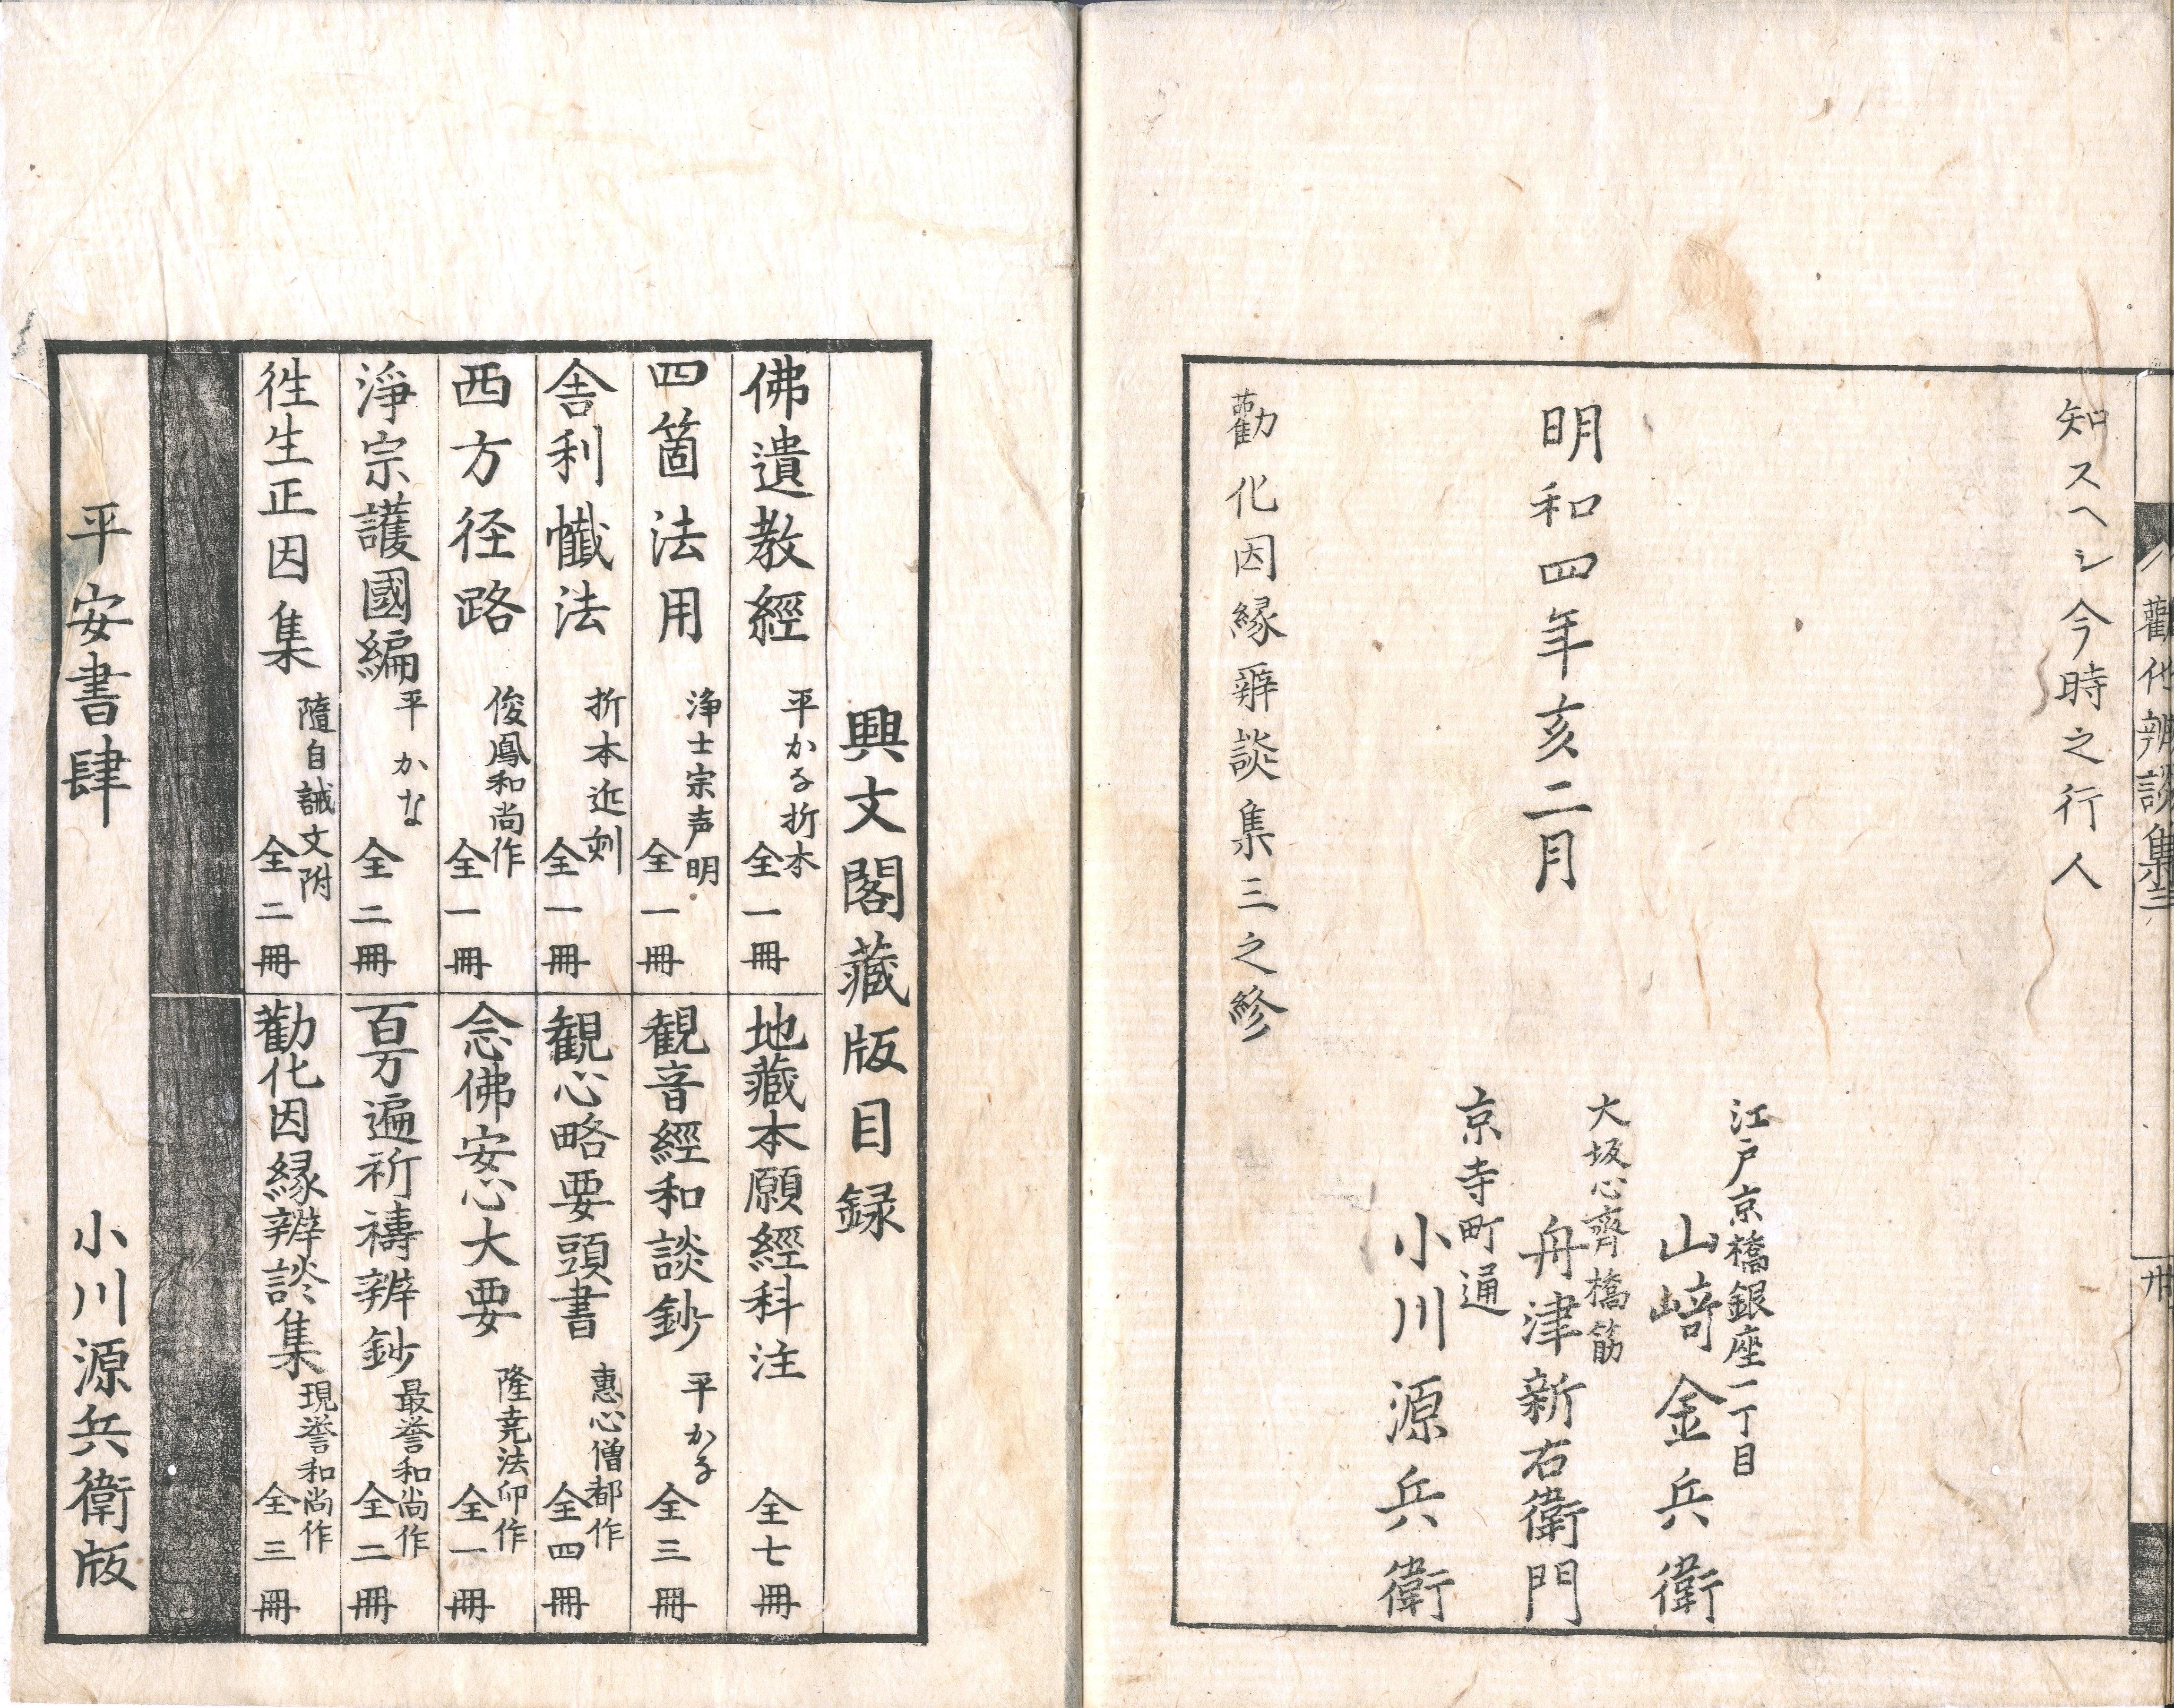 勸化辨談集三
卅
知スヘシ今時之行人
明和四年亥二月
江戸京橋銀座一丁目
山﨑金兵衛
大坂心齊橋筋
舟津新右衛門
京寺町通
小川源兵衛
勸化因縁辨談集三之終
興文閣藏版目録
佛遺教經 平かな折本 全一冊
地藏本願經科注 全七冊
四箇法用 浄土宗声明 全一冊
観音經和談鈔 平かな 全三冊
舎利懺法 折本近刻 全一冊
観心略要頭書 惠心僧都作 全四冊
西方径路 俊鳳和尚作 全一冊
念佛安心大要 隆尭法印作 全一冊
淨宗護國編 平かな 全二冊
百万遍祈禱辨鈔 最誉和尚作 全二冊
徃生正因集 隨自誡文附 全二冊
勸化因縁辨談集 現誉和尚作 全三冊
平安書肆 小川源兵衛版